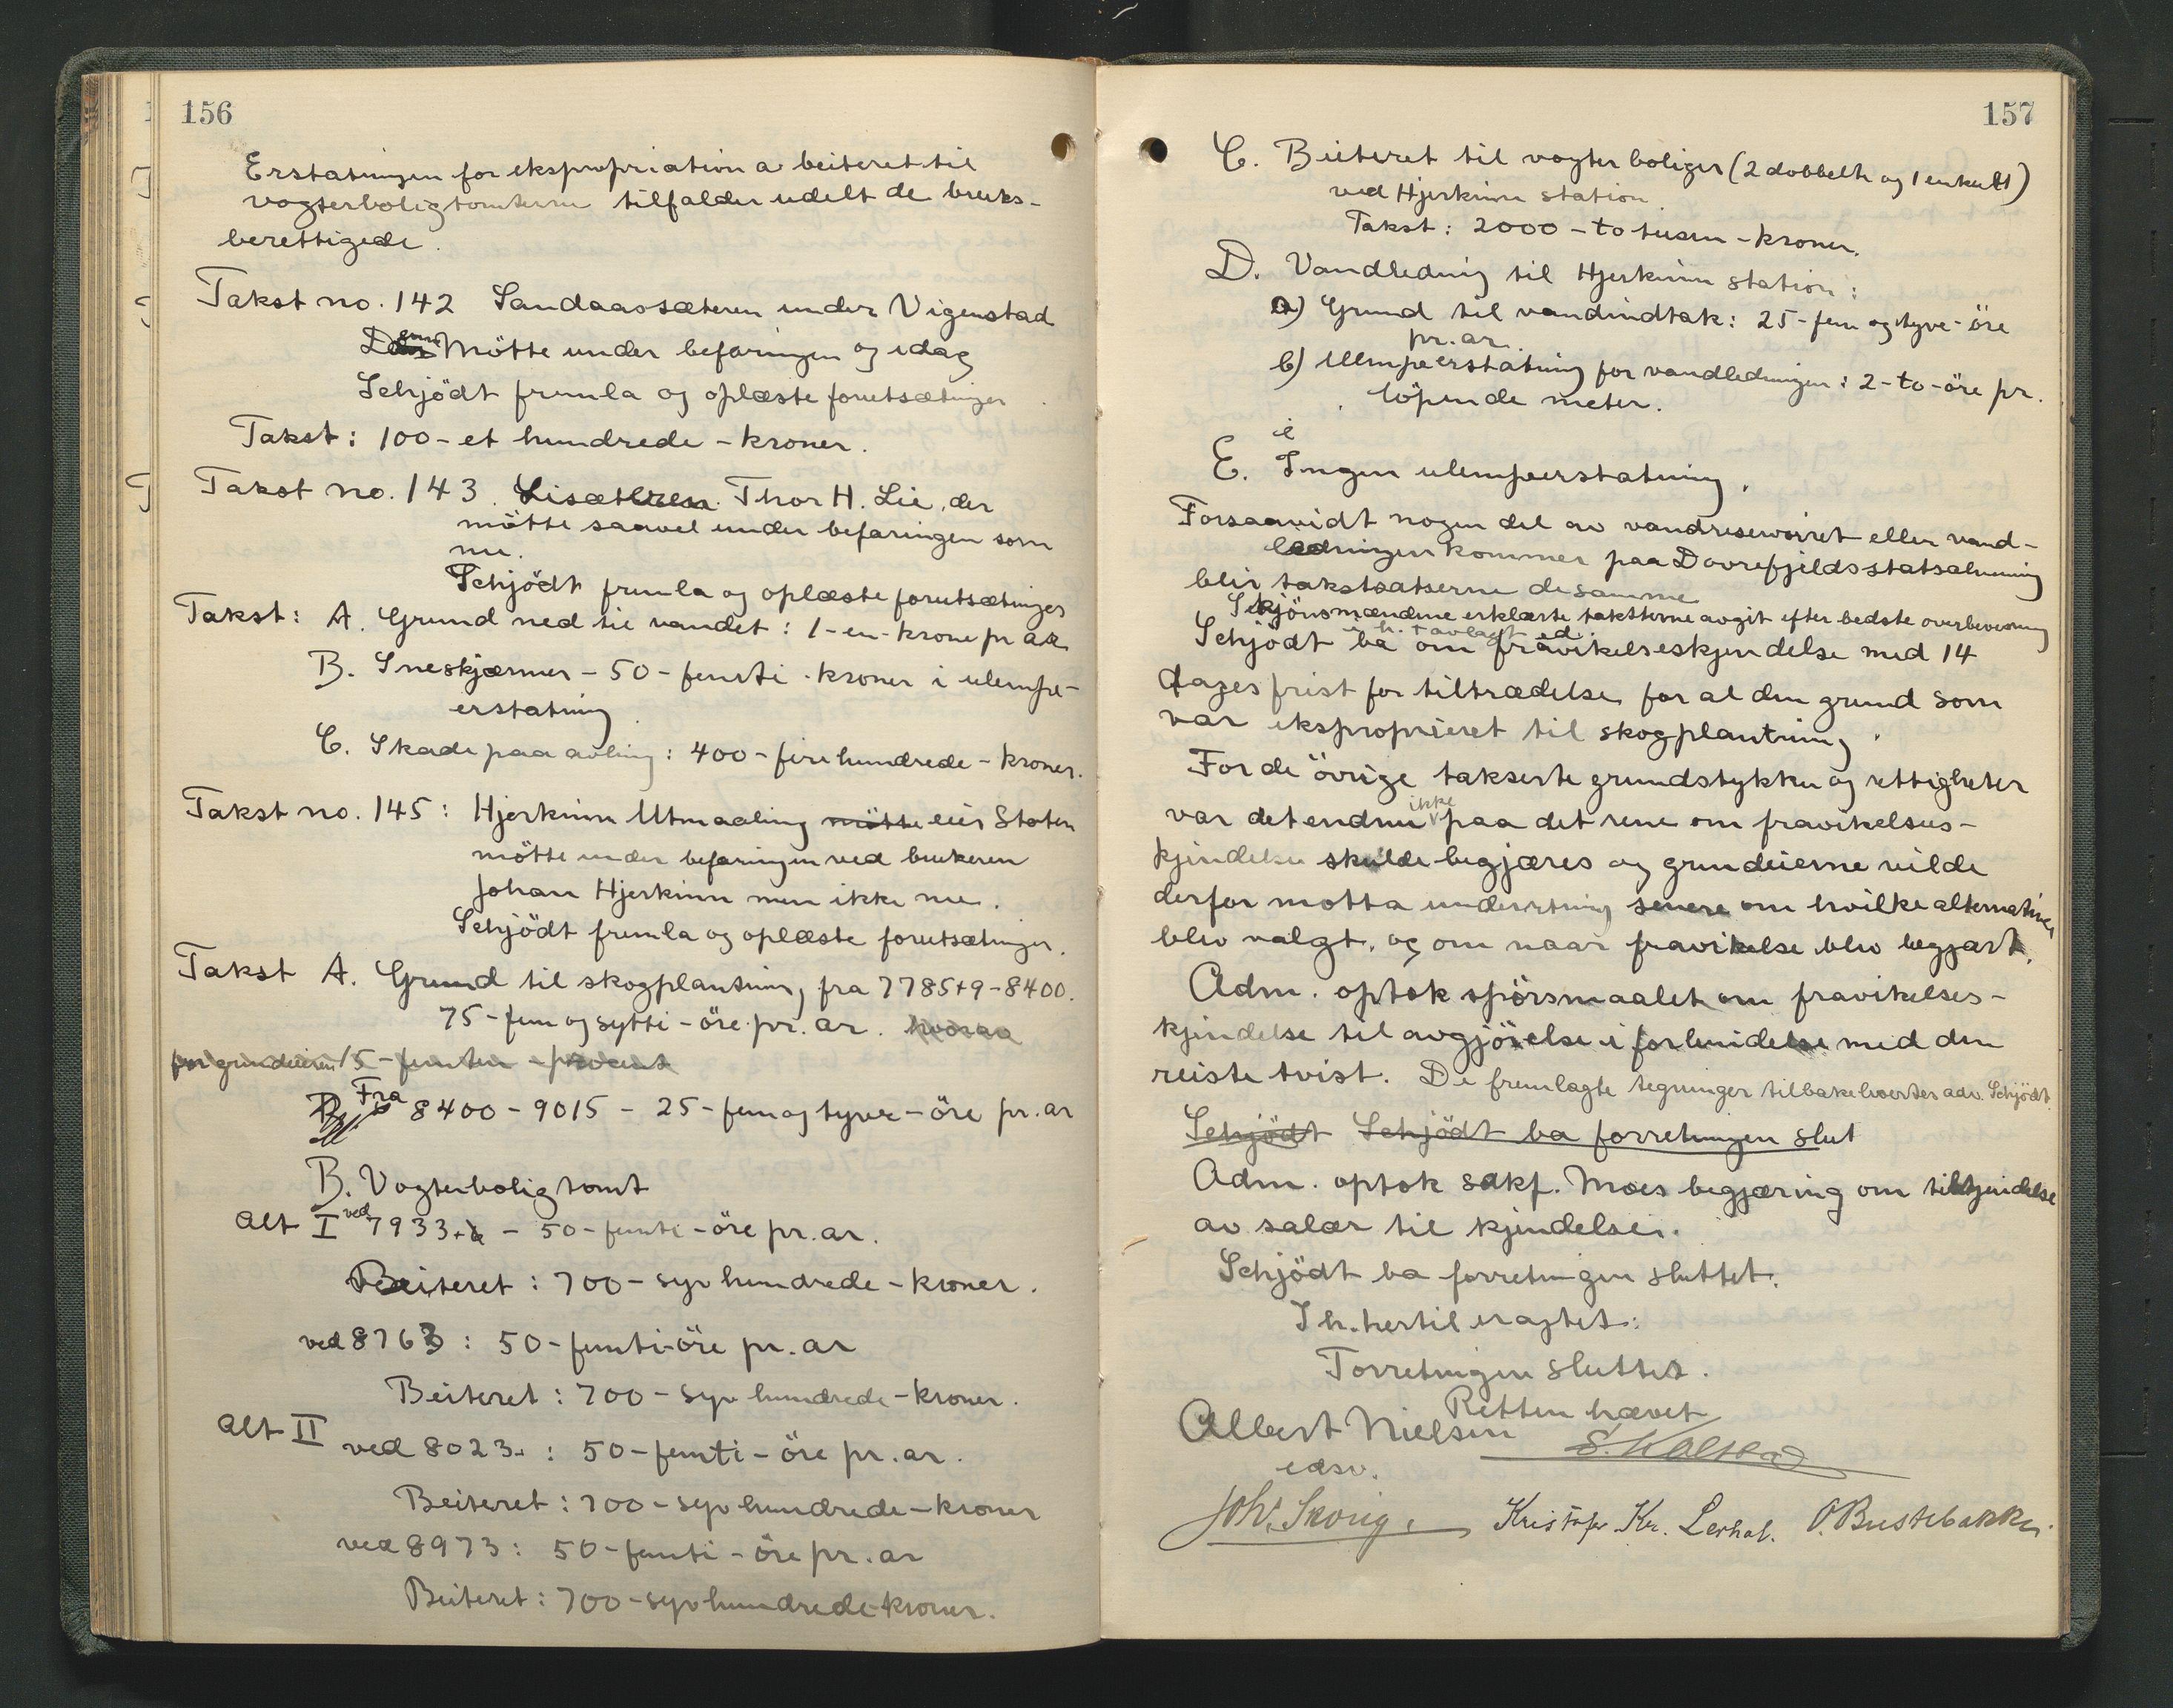 156
Erstatningen for ekspropriation a beiteret til
vogterboligtomterne tilfalder udelt de bruks-
berettigede.
Takst no. 142 Sandaassæteren under Vigenstad
Denne Mötte under befaringen og idag
Schjödt fremla og oplæste forutsætninger
Takst: 100 - et hundrede - kroner.
Takst no. 143. Lisæteren. Thor H. Lie, der
mötte saavel under befaringen som
nu.
Schjödt fremla og oplæste forutsætninger
Takst: A. Grund ned til vandet: 1-en-krone pr ar
B. Sneskjærmer - 50 - femti - kroner i ulempe-
erstatning
C. Skade paa avling: 400 - fire hundrede - kroner.
Takst no. 145: Hjerkinn Utmaaling mötte eier Staten
mötte under befaringen ved brukeren
Johan Hjerkinn men ikke nu.
Schjödt fremla og oplæste forutsætninger.
Takst A. Grund til skogplantning fra 7785+9-8400.
75 - fem og sytti - öre pr. ar. hvorav
for grundeieren 15 - femten - procent
Fra 8400 - 9015 - 25 - fem og tyve - öre pr. ar
B. Vogterboligtomt
Alt I ved 7933 - 50 - femti - öre pr. ar.
Beiteret: 700 - syv hundrede - kroner.
ved 8763: 50 - femti-öre pr. ar
Beiteret: 700 - syv hundrede - kroner.
Alt II ved 8023.: 50 - femti - öre pr. ar.
Beiteret: 700 - syv hundrede - kroner
ved 8973: 50 - femti - öre pr. ar
Beiteret: 700 - syv hundrede-kroner.
157
C. Beiteret til vogterboliger (2 dobbelte og 1 enkelt)
ved Hjerkinn station.
Takst: 2000 - to tusen - kroner.
D. Vandledning til Hjerkinn station:
a) Grund til vandindtak: 25 - fem og tyve - öre
pr. ar.
b) Ulempeerstatning for vandledningen: 2 - to - öre pr.
löpende meter.
E. Ingen ulempeerstatning.
Forsaavidt nogen del av vandreservoiret eller vand-
ledningen kommer paa Dovrefjelds statsalmenning
blir takstsatserne de samme
Skjönsmændene erklærte taksterne avgit efter bedste overbevisning
i h. t avlagt ed.
Schjödt ba om fravikelseskjendelse med 14
dages frist for tiltrædelse for al den grund som
var ekspropriert til skogplantning.
For de övrige takserte grundstykker og rettigheter
var det endnu ikke paa det rene om fravikelses-
kjendelse skulde begjæres og grundeierne vilde
derfor motta underretning senere om hvilke alternativer
blev valgt, og om naar fravikelse blev begjært.
Adm. optok spörsmaalet om fravikelses-
kjendelse til avgjörelse i forbindelse med den
reiste tvist. De fremlagte tegninger tilbakeleverdes adv. Schjödt.
Schjödt Schjödt ba forretningen slut
Adm. optok sakf. Moes begjæring om tilkjendelse
av salær til kjendelse.
Schjödt ba forretningen sluttet.
I h. hertil eragtet:
Forretningen sluttet.
Retten hævet
Albert Nielsen
edsv.
S. Kolstad
Joh. Skorig. Kristofer Kr. Lerhol. O. Bustebakke.